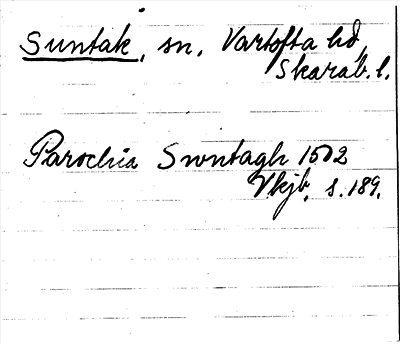 Suntak, sn. Vartofta hd,
Skarab. l.
Parochia Swntagh 1502
Vkjb, s. 189.